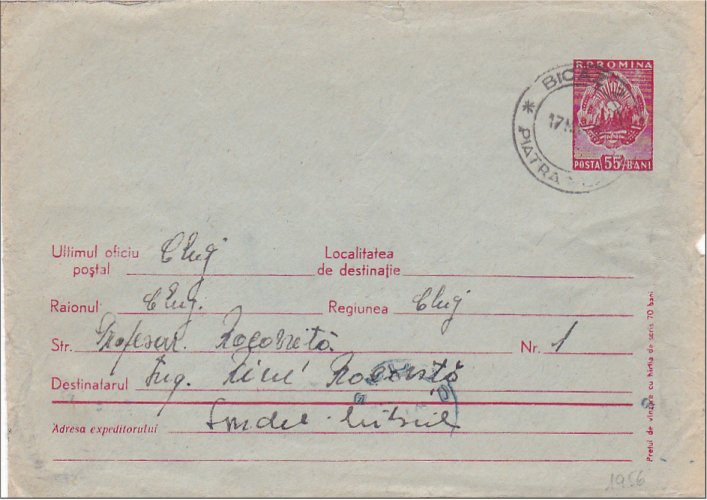 R.P.ROMINA
BICAZ
17
PIATRA
POSTA 55 BANI
Ultimul oficiu poştal Cluj
Localitatea de destinaţie
Raionul Cluj. Regiunea Cluj
Str. Profesor Nr. 1
Destinatarul Ing.
Adresa expeditorului
Preţul de vînzare cu hîrtia de scris 70 bani
1956